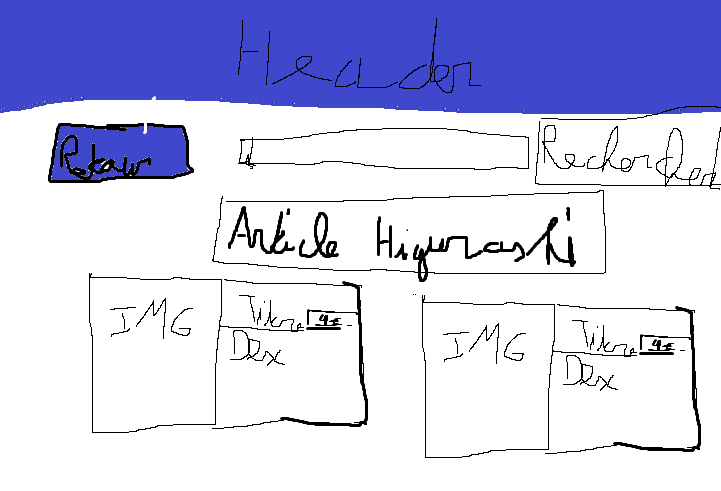 Header
Retour
Rechercher
Article Higurashi
IMG
Titre 4€
Desc
IMG
Titre 4€
Desc